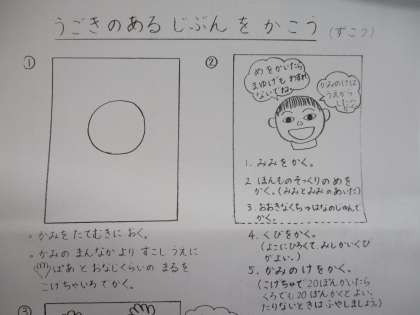 うごきのある じぶん を かこう (ずこう)
①
・かみを たてむきに おく。
・かみの まんなか より すこし うえに
ぱあ と おなじくらいの まるを
こげちゃいろ で かく。
②
めをかいたら
まゆげも わすれ
ないでね。
かみのけは
1. みみを かく。
2. ほんものそっくりの めを
かく。(みみとみみの あいだ)
3. おおきなくち→はなのじゅんで
かく。
4. くびをかく。
(よこにひろくて、みじかいくび
がよい。)
5. かみのけをかく。
(こげちゃで 20ぽんかいたら
くろでも 20ぽんかくとよい。
たりないときは ふやしましょう。)
③